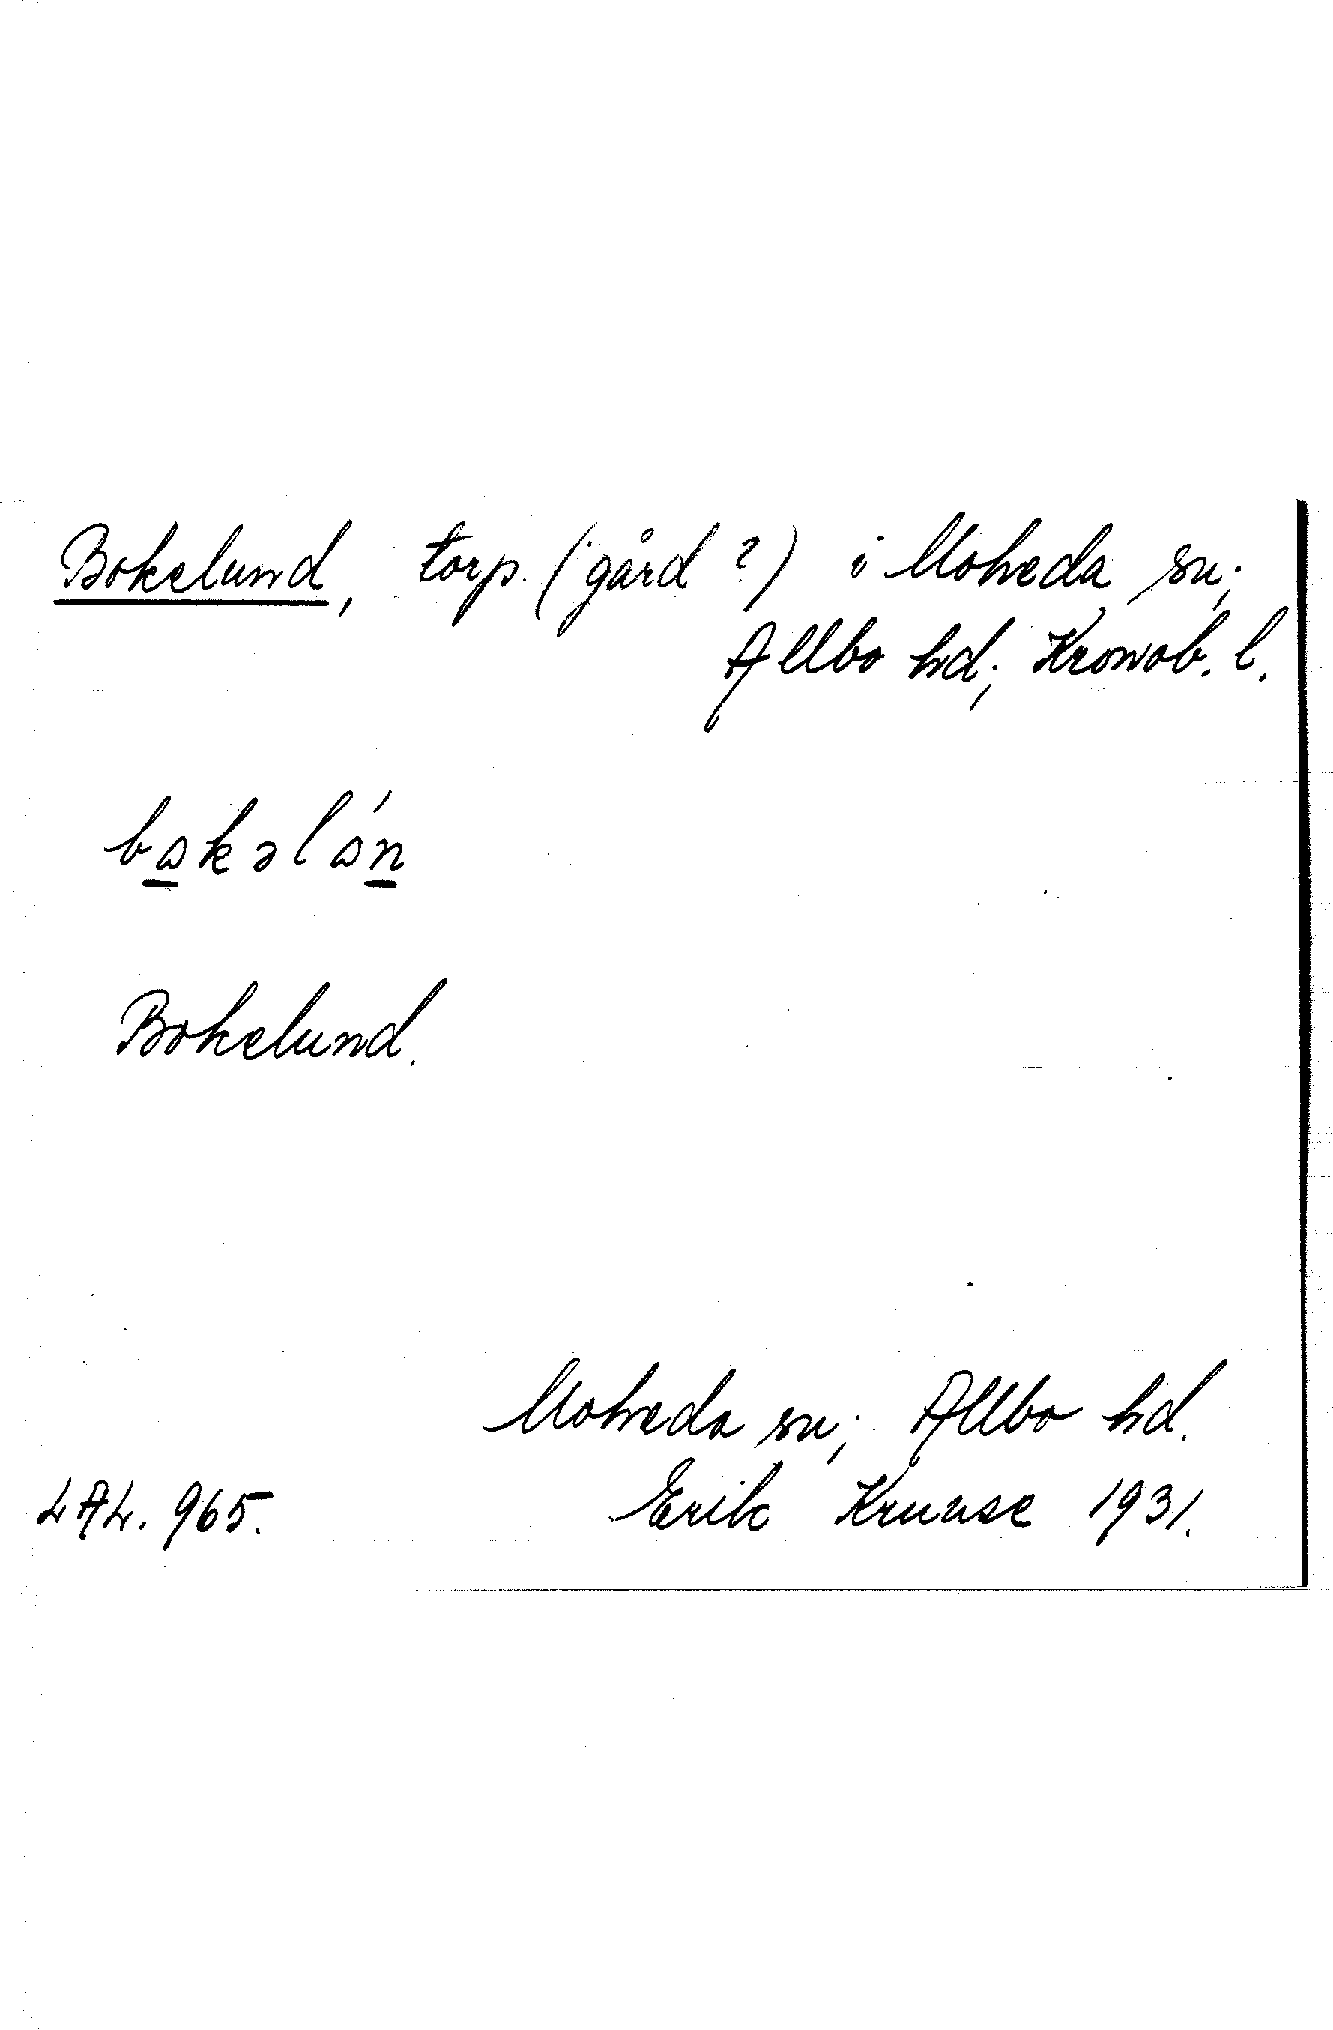 Bokelund, torp. (gård?) i Moheda sn;
Allbo hd; Kronob. l.
bakəlán
Bokelund.
Moheda sn; Allbo hd.
LAL. 965. Erik Kruuse 1931.